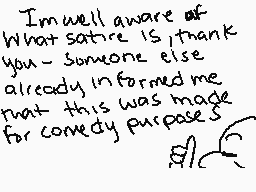 Im well aware of
What satire is, thank
you - someone else
already informed me
that this was made
for comedy purposes